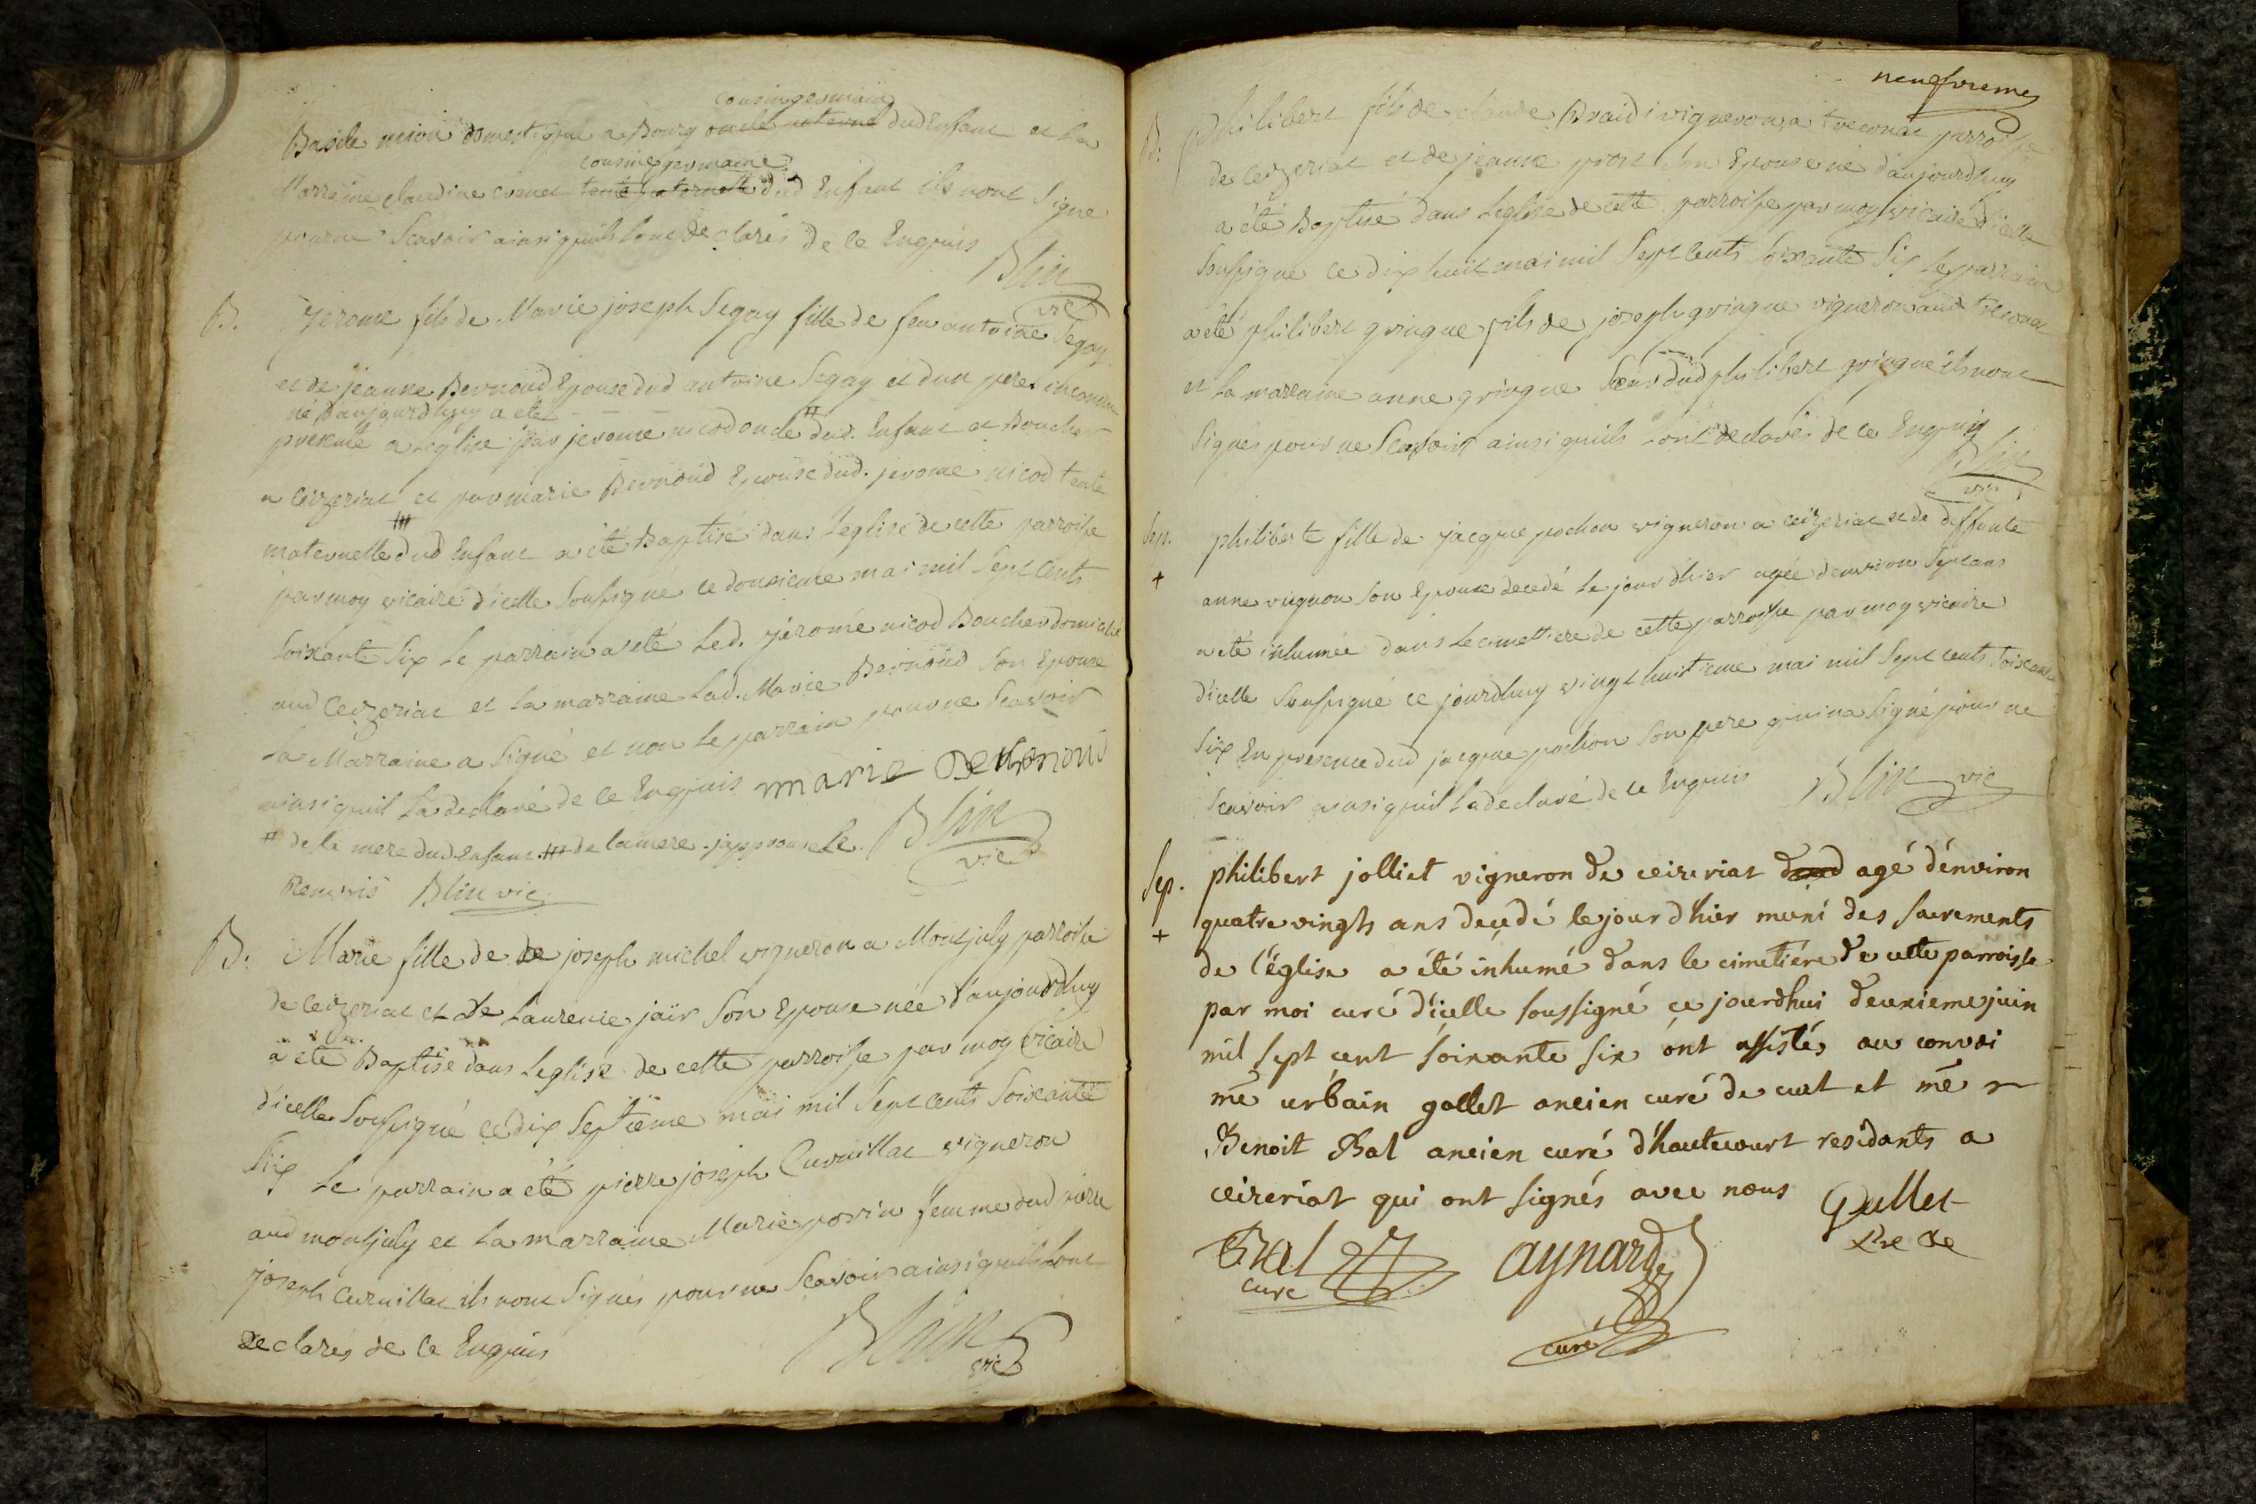 cousin germain
Basile mion domestique a Bourg oncle paternel dud Enfant et la
cousine germaine
Marraine claudine cornet tante paternelle dud Enfant ils nont Signé
pour ne Scavoir ainsi quils lont declarés de ce Enquis
Blin
vic
B. jerome fils de Marie joseph Segay fille de feu antoine Segay
et de jeanne Bernoud Epouse dud antoine Segay et dun pere inconnu
né d'aujourdhuy a été
presenté a leglise par jerome nicod oncle # dud. Enfant et Boucher
a Ceyzeriat et par marie Bernoud Epouse dud. jerome nicod tante
maternelle ### dud Enfant a été Baptisé dans Leglise de cette parroisse
par moy vicaire d'icelle Soussigné ce douzieme mai mil Sept Cents
Soixante Six le parrain a été led. jérome nicod Boucher domicilié
aud Ceyzeriat et la marraine lad. Marie Bernoud Son Epouse
la Marraine a Signé et non le parrain pour ne Scavoir
ainsi quil la declaré de ce Enquis marie Bernoud
# de la mere dud Enfant ### de la mere japprouve le Blin
vic
Renvois Blin vic
B. Marie fille de de joseph michel vigneron a Montjuly parroisse
de Ceyzeriat et de Laurence jair Son Epouse née d'aujourdhuy
a été Baptisé dans Leglise de cette parroisse par moy Vicaire
d'icelle Soussigné ce dix Septieme mai mil Sept Cents Soixante
Six le parrain a été pierre joseph Curnillat vigneron
aud montjuly et la marraine Marie femme dud pierre
joseph Curnillat ils nont Signés pour ne Scavoir ainsi quils lont
declarés de ce Enquis
Blin
vic
neufvieme
B. Philibert fils de claude Braidi vigneron a treconat parroisse
de Ceyzeriat et de jeanne prost Son Epouse né d'aujourdhuy
a été Baptisé dans Leglise de cette parroisse par moy vicaire d'icelle
Soussigné ce dix huit mai mil Sept Cents Soixante Six le parrain
a été philibert gringue fils de joseph gringue vigneron aud treconat
et la marraine anne gringue Sœur dud philibert gringue ils nont
Signés pour ne Scavoir ainsi quils lont declarés de ce Enquis
Blin
vic
Sep. philiberte fille de jacque pochon vigneron a ceyzeriat et de deffunte
+
anne vugnon Son Epouse decedé le jour dhier agée denviron Sept ans
a été inhumée dans le cimettiere de cette parroisse par moy vicaire
d'icelle Soussigné ce jourdhuy vingt huitieme mai mil Sept cents Soixante
Six En presence dud jacque pochon Son pere qui na Signé pour ne
Scavoir ainsi quil la declaré de ce Enquis Blin vic
Sep. philibert jolliet vigneron de ceizeriat agé d'environ
+
quatre vingts ans decedé le jour d'hier muni des sacrements
de l'église a été inhumé dans le cimetiére de cette parroisse
par moi curé d'icelle soussigné ce jourdhui deuxieme juin
mil sept cent soixante six ont assistés au convoi
mé urbain gallet ancien curé de curt et mé
Benoit Bal ancien curé d'hautecourt residants a
ceizeriat qui ont signés avec nous
Gallet
Bal
curé
aynard
curé